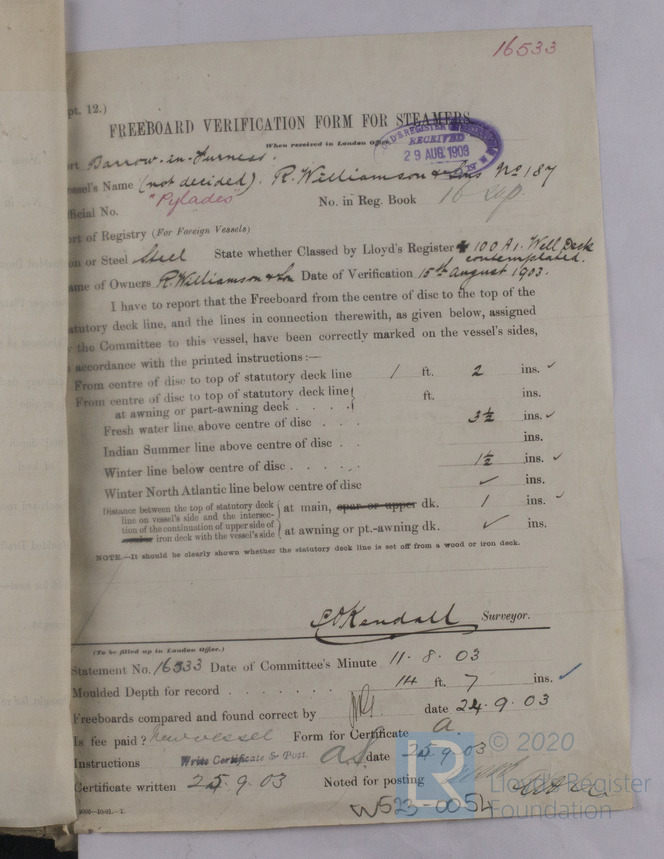 16533
pt. 12.)
FREEBOARD VERIFICATION FORM FOR STEAMERS.
When received in London Office,
LLOYD'S REGISTER
RECEIVED
29 AUG. 1903
Barrow-in-Furness.
Vessel's Name (not decided). R. Williamson & Sons No 187
"Pylades"
fficial No. No. in Reg. Book
rt of Registry (For Foreign Vessels)
on or Steel Steel State whether Classed by Lloyd's Register 100 A1. Well Deck
contemplated.
ame of Owners R. Williamson & Son Date of Verification 15th August 1903.
I have to report that the Freeboard from the centre of disc to the top of the
atutory deck line, and the lines in connection therewith, as given below, assigned
y the Committee to this vessel, have been correctly marked on the vessel's sides,
accordance with the printed instructions:—
From centre of disc to top of statutory deck line 1 ft. 2 ins. ✓
From centre of disc to top of statutory deck line ft. ins.
at awning or part-awning deck . . . .
Fresh water line above centre of disc . . . 3½ ins. ✓
Indian Summer line above centre of disc . . ins.
Winter line below centre of disc . . . . . 1½ ins. ✓
Winter North Atlantic line below centre of disc ✓ ins.
Distance between the top of statutory deck
line on vessel's side and the intersec-
tion of the continuation of upper side of
iron deck with the vessel's side
at main, spar or upper dk. 1 ins. ✓
at awning or pt.-awning dk. ✓ ins.
NOTE.—It should be clearly shown whether the statutory deck line is set off from a wood or iron deck.
Kendall Surveyor.
(To be filled up in London Office.)
Statement No. 16533 Date of Committee's Minute 11. 8. 03
Moulded Depth for record . . . . . . . 14 ft. 7 ins. ✓
Freeboards compared and found correct by date 24. 9. 03
Is fee paid? New vessel Form for Certificate a.
Instructions Write Certificate & Post. date 25 9. 03
Certificate written 25. 9. 03 Noted for posting
W523-0054
© 2020
Lloyd's Register
Foundation